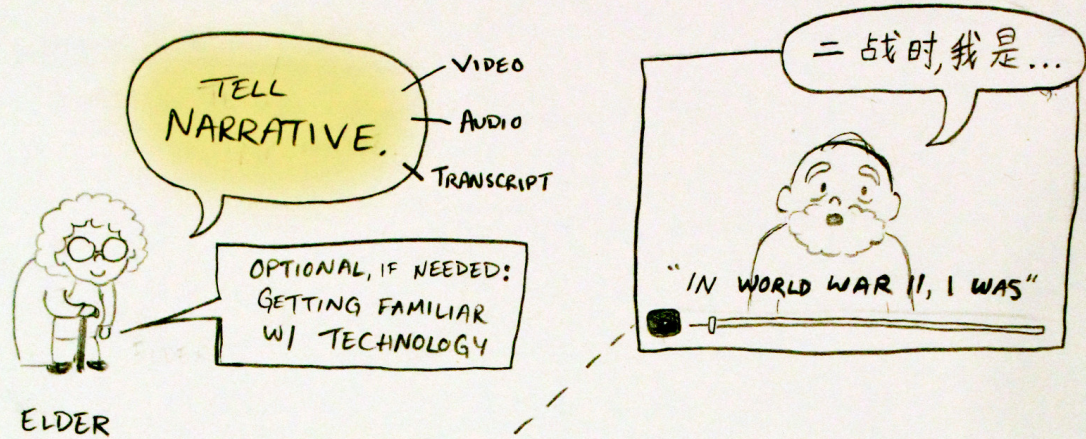 TELL
NARRATIVE.
VIDEO
AUDIO
TRANSCRIPT
OPTIONAL, IF NEEDED:
GETTING FAMILIAR
W/ TECHNOLOGY
ELDER
二战时,我是...
"IN WORLD WAR II, I WAS"